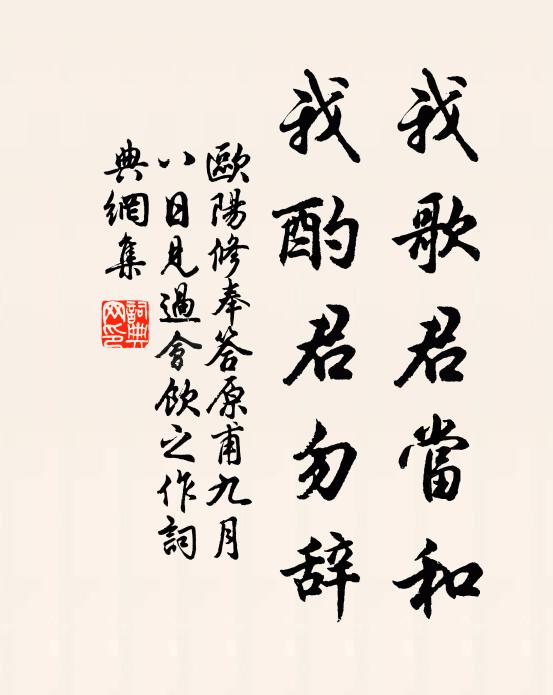 我歌君當和
我酌君勿辞
歐陽修奉答原甫九月
八日見過會飲之作詞
典網集
詞典
网印